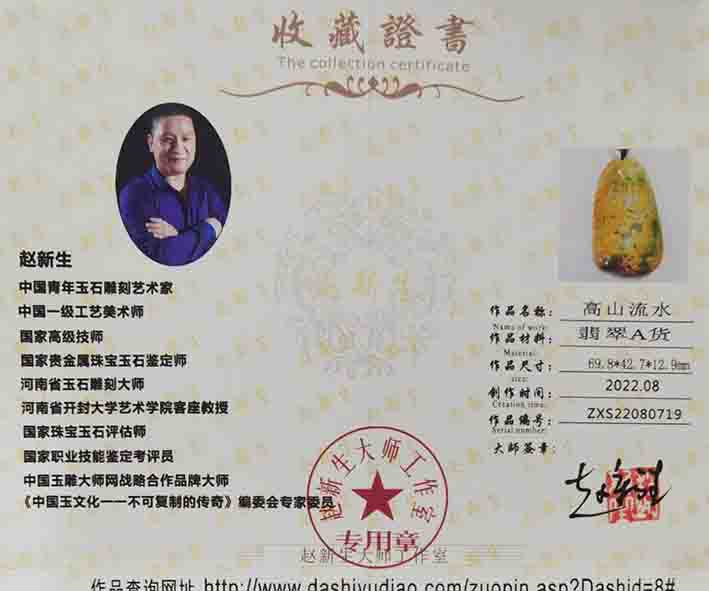 收藏證書
The collection certificate
赵新生
中国青年玉石雕刻艺术家
中国一级工艺美术师
国家高级技师
国家贵金属珠宝玉石鉴定师
河南省玉石雕刻大师
河南省开封大学艺术学院客座教授
国家珠宝玉石评估师
国家职业技能鉴定考评员
中国玉雕大师网战略合作品牌大师
《中国玉文化一一不可复制的传奇》编委会专家委员
作品名称： 高山流水
Name of work:
作品材料： 翡翠A货
Material:
作品尺寸： 69.8*42.7*12.9mm
size:
创作时间： 2022.08
Creation time:
作品编号： ZXS22080719
Serial number:
大师签章：
赵新生
赵新生大师工作室
专用章
赵新生大师工作室
作品查询网址 http://www.dashiyudiao.com/zuopin.asp?Dashid=8#